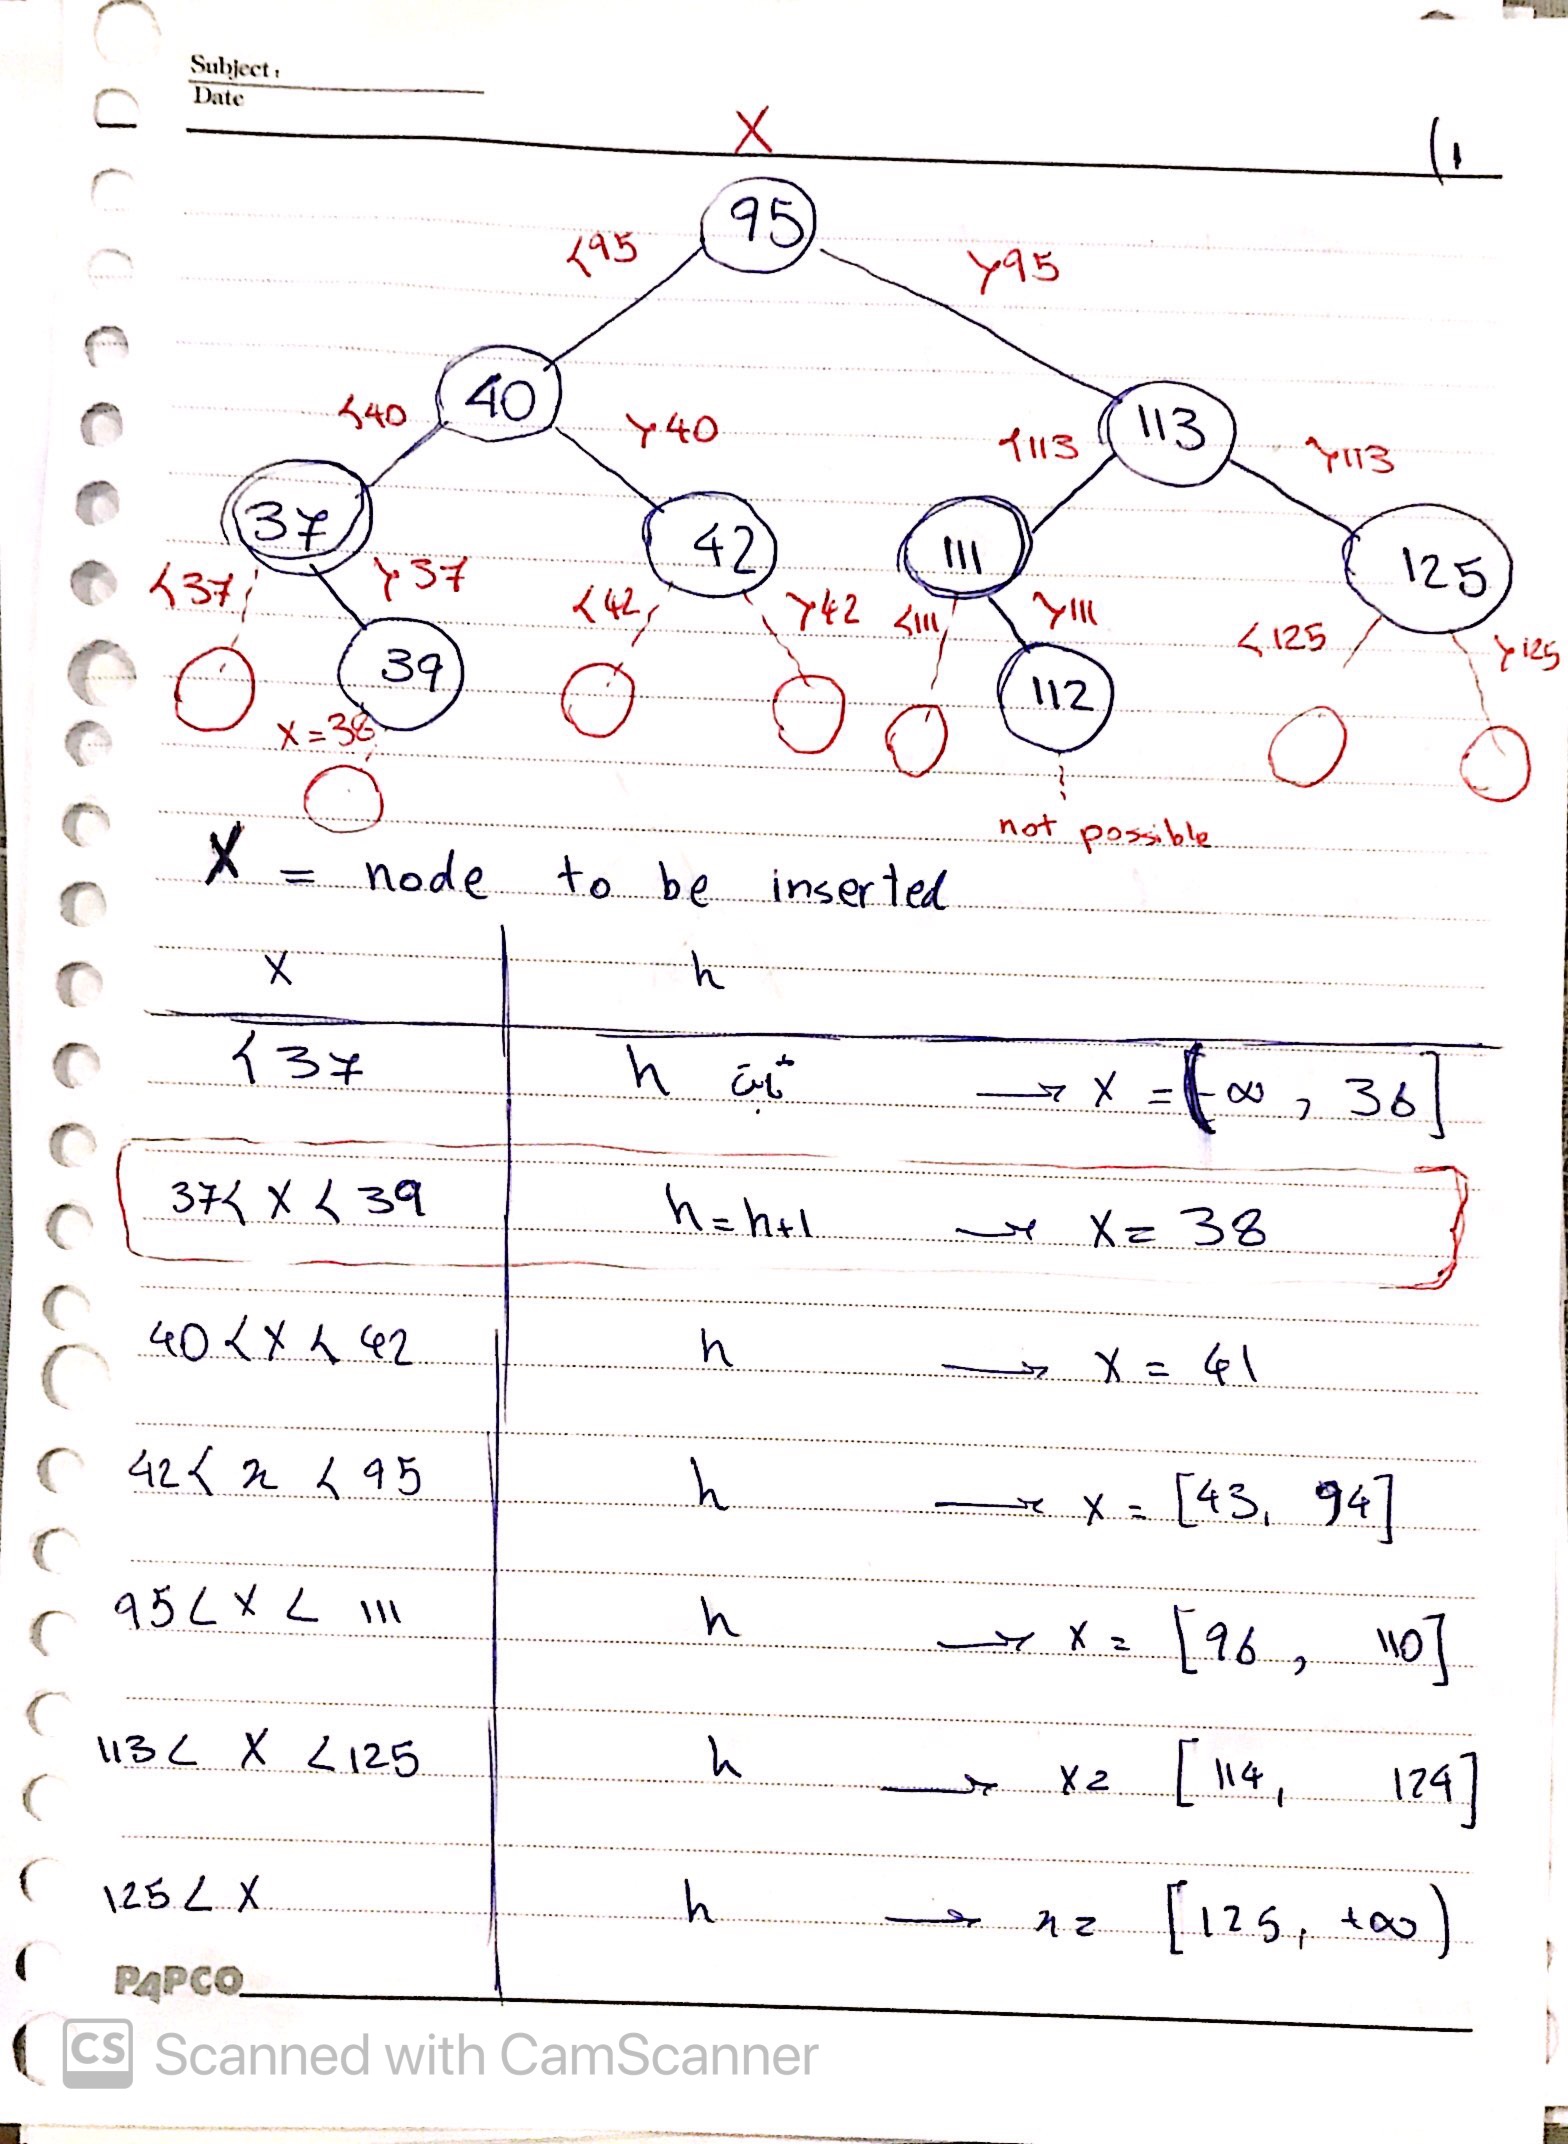 Subject:
Date
X
(1
95
<95
>95
40
113
<40
>40
<113
>113
37
42
111
125
<37
>37
<42
>42
<111
>111
<125
>125
39
112
x=38
not possible
X = node to be inserted
x h
<37 h ثابت → x = (-∞, 36]
37< x <39 h=h+1 → x= 38
40 < x < 42 h → x = 41
42< x < 95 h → x = [43, 94]
95 < x < 111 h → x = [96, 110]
113 < x < 125 h → x= [114, 124]
125 < x h → x= [125, +∞)
PAPCO
CS Scanned with CamScanner